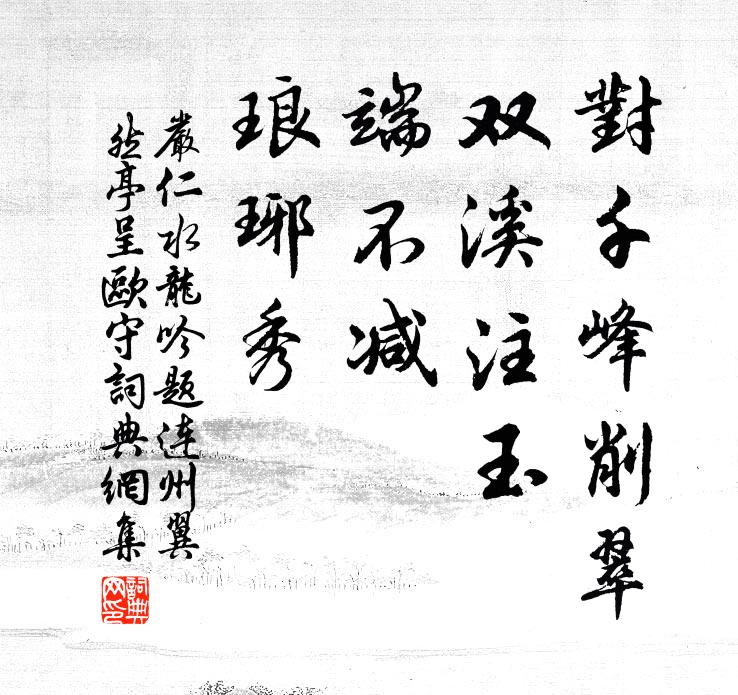 對千峰削翠
双溪注玉
端不减
琅琊秀
嚴仁水龍吟题连州翼
然亭呈歐守詞典網集
詞典
网印